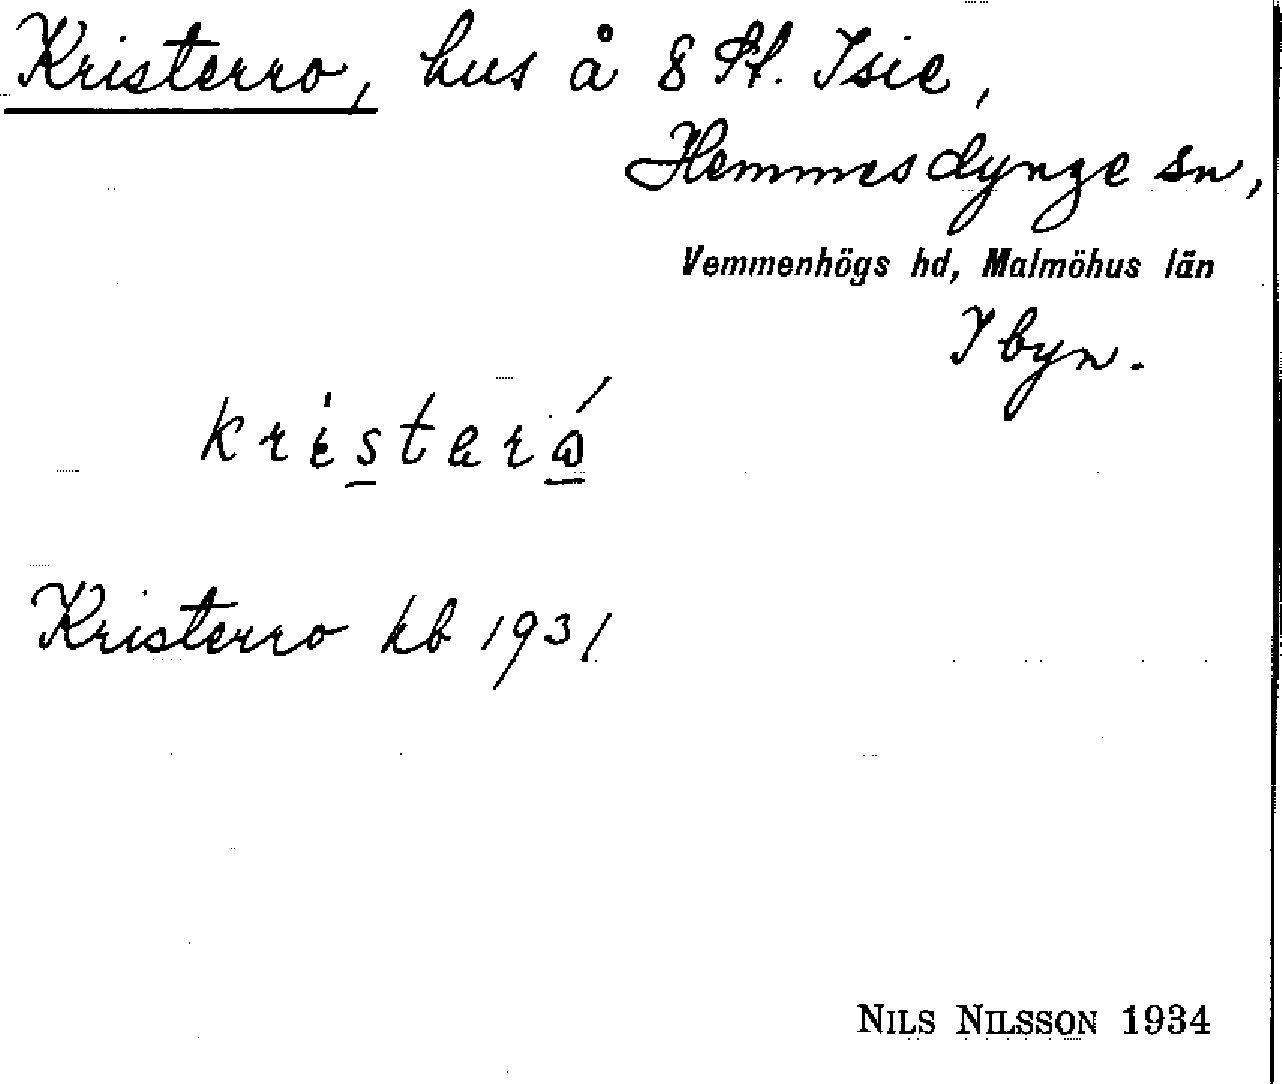 Kristerro, hus å 8 St. Isie,
Hemmesdynge sn,
Vemmenhögs hd, Malmöhus län
I byn.
Kristerro kb 1931
NILS NILSSON 1934